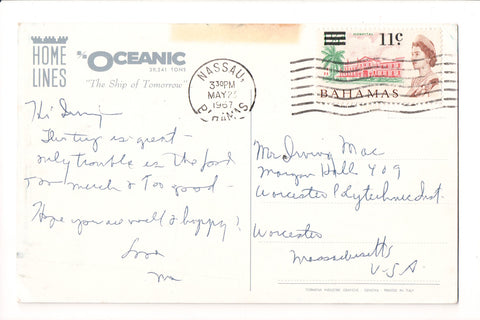 HOME
LINES
S/S OCEANIC
39,241 TONS
"The Ship of Tomorrow"
NASSAU,
330PM
MAY 2
1967
BAHAMAS
HOSPITAL
11c
BAHAMAS
Hi Irving
This trip is great -
only trouble is the food
Too much & Too good -
Hope you are well & happy?
Love
Ma
Mr Irving Mac
Morgan Hall 409
Worcester Polytechnic Inst.
Worcester
Massachusetts
U.S.A.
PRINTED IN ITALY